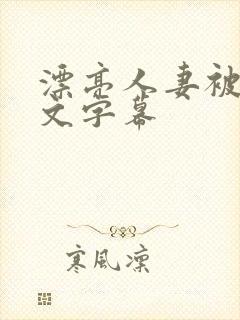 漂亮人妻被
文字幕
寒风凛